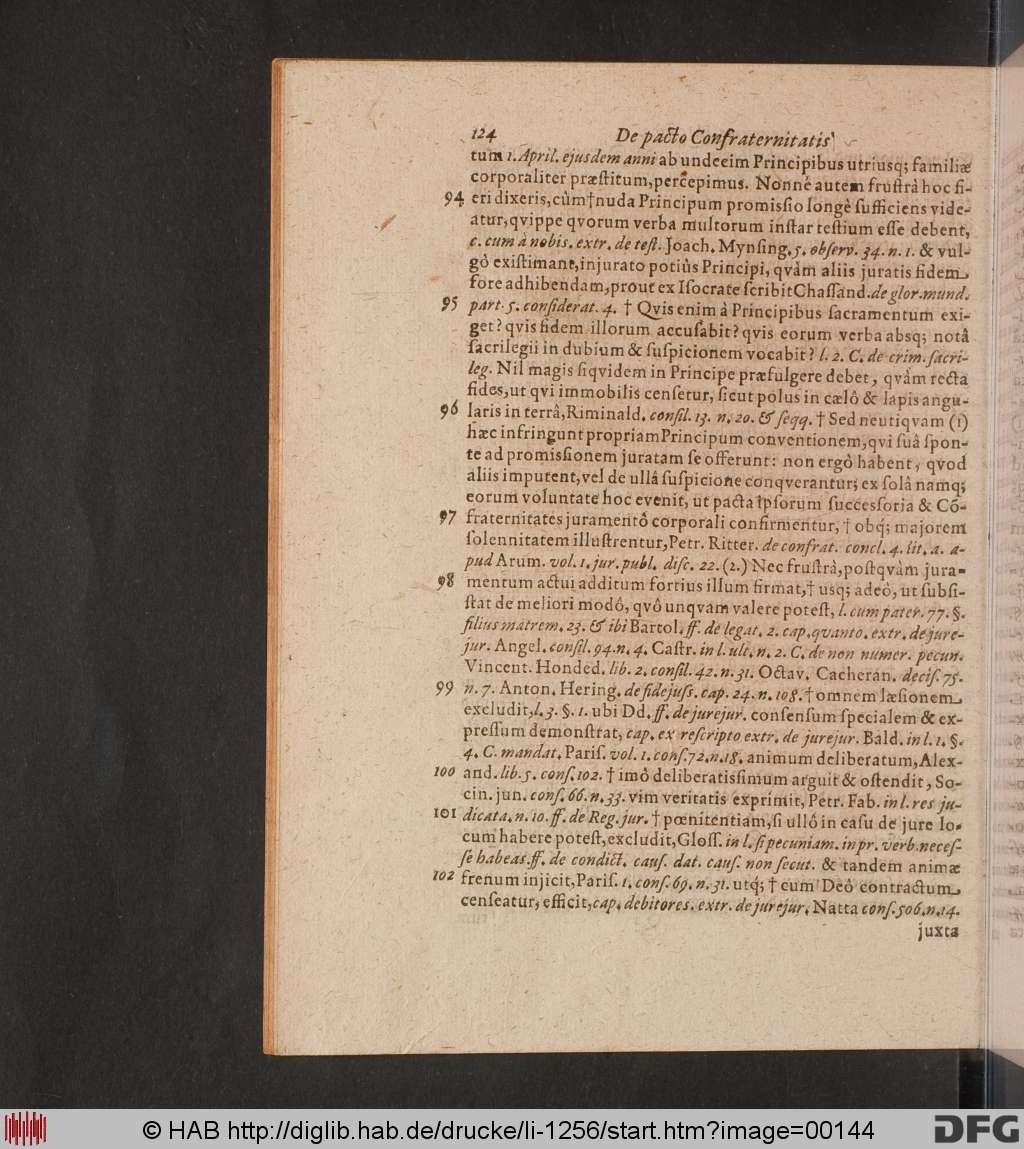 124 De pacto Confraternitatis
tum 1. April. ejusdem anni ab undecim Principibus utriusq; familiæ
corporaliter præſtitum, percepimus. Nonnè autem fruſtrà hoc fi-
94 eri dixeris, cùm † nuda Principum promiſſio longè ſufficiens vide-
atur, qvippe qvorum verba multorum inſtar teſtium eſſe debent,
c. cum à nobis. extr. de teſt. Joach. Mynſing. 5. obſerv. 34. n. 1. & vul-
gò exiſtimant, injurato potiùs Principi, qvàm aliis juratis fidem
fore adhibendam, prout ex Iſocrate ſcribit Chaſſand. de glor. mund.
95 part. 5. conſiderat. 4. † Qvis enim à Principibus ſacramentum exi-
get? qvis fidem illorum accuſabit? qvis eorum verba absq; notâ
ſacrilegii in dubium & ſuſpicionem vocabit? l. 2. C. de crim. ſacri-
leg. Nil magis ſiqvidem in Principe præfulgere debet, qvàm recta
fides, ut qvi immobilis cenſetur, ſicut polus in cælô & lapis angu-
96 laris in terrâ, Riminald. conſil. 13. n. 20. & ſeqq. † Sed neutiqvam (1)
hæc infringunt propriam Principum conventionem, qvi ſuâ ſpon-
te ad promiſſionem juratam ſe offerunt: non ergò habent, qvod
aliis imputent, vel de ullâ ſuſpicione conqverantur; ex ſolâ namq;
eorum voluntate hoc evenit, ut pacta ipſorum ſucceſſoria & Cõ-
97 fraternitates juramentô corporali confirmentur, † obq; majorem
ſolennitatem illuſtrentur, Petr. Ritter. de confrat. concl. 4. lit. a. a-
pud Arum. vol. 1. jur. publ. diſc. 22. (2.) Nec fruſtrà, poſtqvàm jura-
98 mentum actui additum fortius illum firmat, † usq; adeò, ut ſubſi-
ſtat de meliori modô, qvô unqvam valere poteſt, l. cum pater. 77. §.
filius matrem. 23. & ibi Bartol. ff. de legat. 2. cap. qvanto. extr. de jure-
jur. Angel. conſil. 94. n. 4. Caſtr. in l. ult. n. 2. C. de non numer. pecun.
Vincent. Honded. lib. 2. conſil. 42. n. 31. Octav. Cacheran. deciſ. 75.
99 n. 7. Anton. Hering. de fidejuſs. cap. 24. n. 108. † omnem læſionem
excludit, l. 3. §. 1. ubi Dd. ff. de jurejur. conſenſum ſpecialem & ex-
preſſum demonſtrat, cap. ex reſcripto extr. de jurejur. Bald. in l. 1. §.
4. C. mandat. Pariſ. vol. 1. conſ. 72. n. 18. animum deliberatum, Alex-
100 and. lib. 5. conſ. 102. † imò deliberatiſſimum arguit & oſtendit, So-
cin. jun. conſ. 66. n. 33. vim veritatis exprimit, Petr. Fab. in l. res ju-
101 dicata. n. 10. ff. de Reg. jur. † pœnitentiam, ſi ullô in caſu de jure lo-
cum habere poteſt, excludit, Gloſſ. in l. ſi pecuniam. in pr. verb. neceſ-
ſe habeas. ff. de condict. cauſ. dat. cauſ. non ſecut. & tandem animæ
102 frenum injicit, Pariſ. 1. conſ. 69. n. 31. utq; † cum Deô contractum
cenſeatur, efficit, cap. debitores. extr. de jurejur. Natta conſ. 506. n. 14.
juxta
© HAB http://diglib.hab.de/drucke/li-1256/start.htm?image=00144
DFG